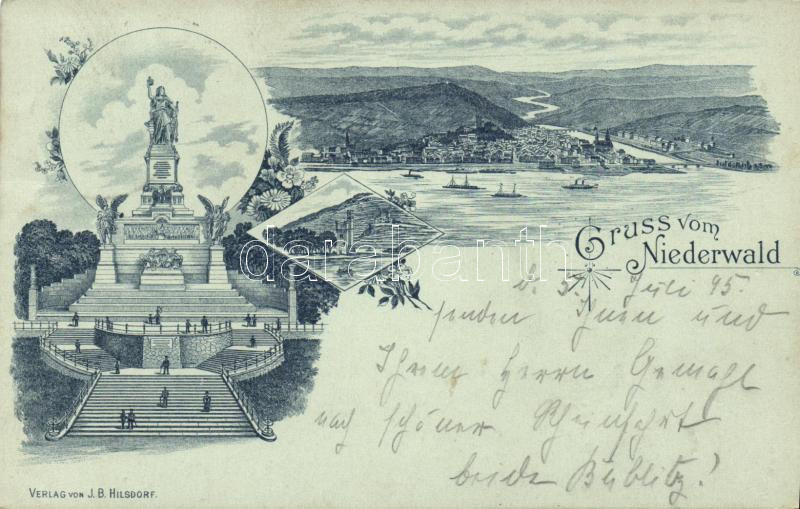 Gruss vom
Niederwald
darabanth
d. 5. Juli 95.
senden Ihnen und
Ihrem Herrn Gemahl
nach schöner Rheinfahrt
beide
VERLAG VON J. B. HILSDORF.